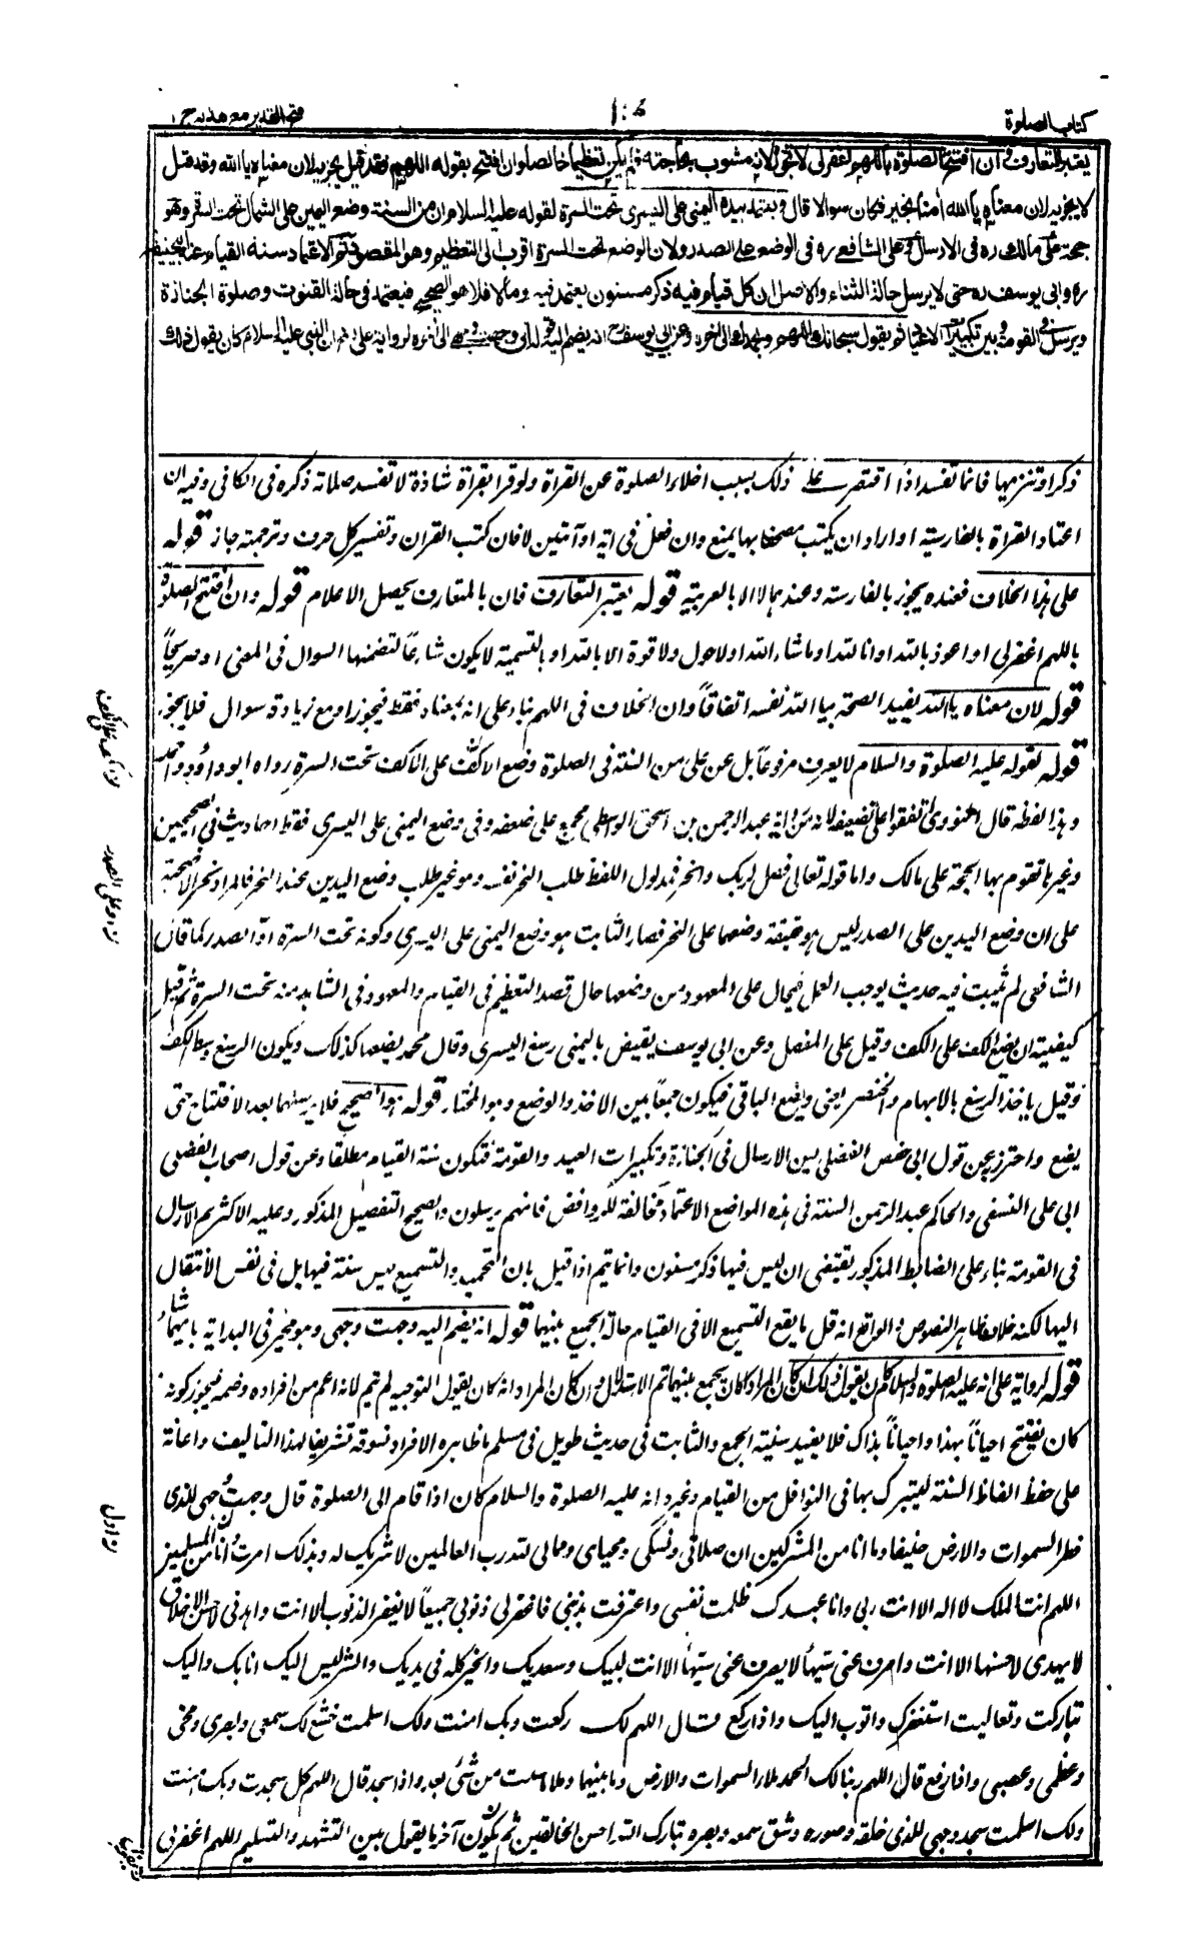 كتاب الصلوة
فتح القدير مع هدايه ج ١
يعتبر التعارف وان افتتح الصلوة باللهم اغفر لى لا تجوز لانه مشوب بحاجته فلم يكن تعظيما خالصا وان افتتح بقوله اللهم فقد قيل يجزيه لان معناه يا الله وقد قيل
لا يجزيه لان معناه يا الله أمنا بخير فكان سوالا قال ويعتمد بيده اليمنى على اليسرى تحت السرة لقوله عليه السلام ان من السنة وضع اليمين على الشمال تحت السرة وهو
حجة على مالك ره فى الارسال وعلى الشافعى ره فى الوضع على الصدر ولان الوضع تحت السرة اقرب الى التعظيم وهو المقصود ثم الاعتماد سنة القيام عند ابى حنيفة
ره وابى يوسف ره حتى لا يرسل حالة الثناء والاصل ان كل قيام فيه ذكر مسنون يعتمد فيه وما لا فلا هو الصحيح فيعتمد فى حالة القنوت وصلوة الجنازة
ويرسل فى القومة وبين تكبيرات الاعياد ثم يقول سبحانك اللهم وبحمدك الى اخره وعن ابى يوسف انه يضم اليه قوله انى وجهت وجهى الى اخره لرواية على ان النبى عليه السلام كان يقول ذلك
ذكرا وتنزيها فانما تفسد اذا اقتصر على ذلك بسبب اخلاء الصلوة عن القراة ولو قرا بقراة شاذة لا تفسد صلاته ذكره فى الكافى وفيه ان
اعتاد القراة بالفارسية او اراد ان يكتب مصحفا بها يمنع وان فعل فى اية او آيتين لا فان كتب القران وتفسير كل حرف وترجمته جاز قوله
على هذا الخلاف فعنده يجوز بالفارسية وعندهما لا الا بالعربية قوله يعتبر التعارف فان بالمتعارف يحصل الاعلام قوله وان افتتح الصلوة
باللهم اغفر لى او اعوذ بالله او انا لله او ما شاء الله او لا حول ولا قوة الا بالله او بالتسمية لا يكون شارعا لتضمنها السوال فى المعنى او صريحًا
قوله لان معناه يا الله يفيد الصحة بيا الله نفسه اتفاقًا وان الخلاف فى اللهم بناء على انه بمعناه فقط فيجوز او مع زيادة سوال فلا يجوز
قوله لقوله عليه الصلوة والسلام لا يعرف مرفوعًا بل عن على من السنة فى الصلوة وضع الاكف على الاكف تحت السرة رواه ابو داود واحمد
وهذا لفظه قال النووى اتفقوا على تضعيفه لانه من رواية عبد الرحمن بن اسحق الواسطى مجمع على ضعفه وفى وضع اليمنى على اليسرى فقط احاديث فى الصحيحين
وغيرها تقوم بها الحجة على مالك واما قوله تعالى فصل لربك وانحر فمدلول اللفظ طلب النحر نفسه وهو غير طلب وضع اليدين عند النحر فالمراد نحر الاضحية
على ان وضع اليدين على الصدر ليس هو حقيقة وضعهما على النحر فصار الثابت هو وضع اليمنى على اليسرى وكونه تحت السرة او الصدر كما قال
الشافعى لم يثبت فيه حديث يوجب العمل فيحال على المعهود من وضعها حال قصد التعظيم فى القيام والمعهود فى الشاهد منه تحت السرة ثم قيل
كيفيته ان يضع الكف على الكف وقيل على المفصل وعن ابى يوسف يقبض باليمنى رسغ اليسرى وقال محمد يضعها كذلك ويكون الرسغ وسط الكف
وقيل ياخذ الرسغ بالابهام والخنصر يعنى ويضع الباقى فيكون جمعًا بين الاخذ والوضع وهو المختار قوله هو الصحيح فلا يرسلهما بعد الافتتاح حتى
يضع واحترز به عن قول ابى حفص الفضلى يسن الارسال فى الجنازة وتكبيرات العيد والقومة فتكون سنة القيام مطلقًا وعن قول اصحاب الفضلى
ابى على النسفى والحاكم عبد الرحمن السنة فى هذه المواضع الاعتماد مخالفة للروافض فانهم يرسلون والصحيح التفصيل المذكور وعليه الاكثر ثم الارسال
فى القومة بناء على الضابط المذكور يقتضى ان ليس فيها ذكر مسنون وانما يتم اذا قيل بان التحميد والتسميع ليس سنة فيها بل فى نفس الانتقال
اليها لكنه خلاف ظاهر النصوص والواقع انه قل ما يقع التسميع الا فى القيام حالة الجمع بينهما قوله انه يضم اليه وجهت وجهى وهو مخير فى البداية بايهما شاء
قوله لرواية على انه عليه الصلوة والسلام كان يقول ذلك ان كان المراد كان يجمع بينهما تم الاستدلال وان كان المراد انه كان يقول التوجيه لم يتم لانه اعم من افراده وضمه فيجوز كونه
كان يفتتح احيانًا بهذا واحيانًا بذاك فلا يفيد سنية الجمع والثابت فى حديث طويل فى مسلم ما ظاهره الافراد نسوقه تشريفا لهذا التاليف واعانة
على حفظ الفاظ السنة ليتبرك بها فى النوافل من القيام وغيره انه عليه الصلوة والسلام كان اذا قام الى الصلوة قال وجهت وجهى للذى
فطر السموات والارض حنيفا وما انا من المشركين ان صلاتى ونسكى ومحياى ومماتى لله رب العالمين لا شريك له وبذلك امرت وانا من المسلمين
اللهم انت الملك لا اله الا انت ربى وانا عبدك ظلمت نفسى واعترفت بذنبى فاغفر لى ذنوبى جميعًا لا يغفر الذنوب الا انت واهدنى لاحسن الاخلاق
لا يهدى لاحسنها الا انت واصرف عنى سيئها لا يصرف عنى سيئها الا انت لبيك وسعديك والخير كله فى يديك والشر ليس اليك انا بك واليك
تباركت وتعاليت استغفرك واتوب اليك واذا ركع قال اللهم لك ركعت وبك امنت ولك اسلمت خشع لك سمعى وبصرى ومخى
وعظمى وعصبى واذا رفع قال اللهم ربنا لك الحمد ملأ السموات والارض وما بينهما وملأ ما شئت من شئ بعد واذا سجد قال اللهم لك سجدت وبك امنت
ولك اسلمت سجد وجهى للذى خلقه وصوره وشق سمعه وبصره تبارك الله احسن الخالقين ثم يكون آخر ما يقول بين التشهد والتسليم اللهم اغفر لى